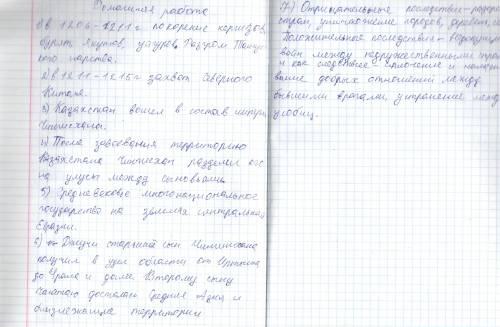 Домашняя работа
1) В 1206-1211 г покорение киргизов,
бурят, якутов, уйгуров, разгром Тангу-
тского царства.
2) В 1211-1215 г захват северного
Китая.
3) Казахстан вошел в состав импери
Чингисхана.
4) После завоевания территорию
Казахстана Чингисхан разделил его
на улусы между сыновьями.
5) Средневековое многонациональное
государство на землях центральной
Евразии.
6) Джучи старший сын
получил в удел области от Иртыша
до Урала и далее. Второму сыну
Чагатаю досталась Средняя Азия и
близлежащие территории
7) Отрицательные последствия - разоре
стран, уничтожение народов,
Положительное последствие -
войн между
и как следствие
ние добрых отношений между
бывшими врагами, устранение между
усобиц.